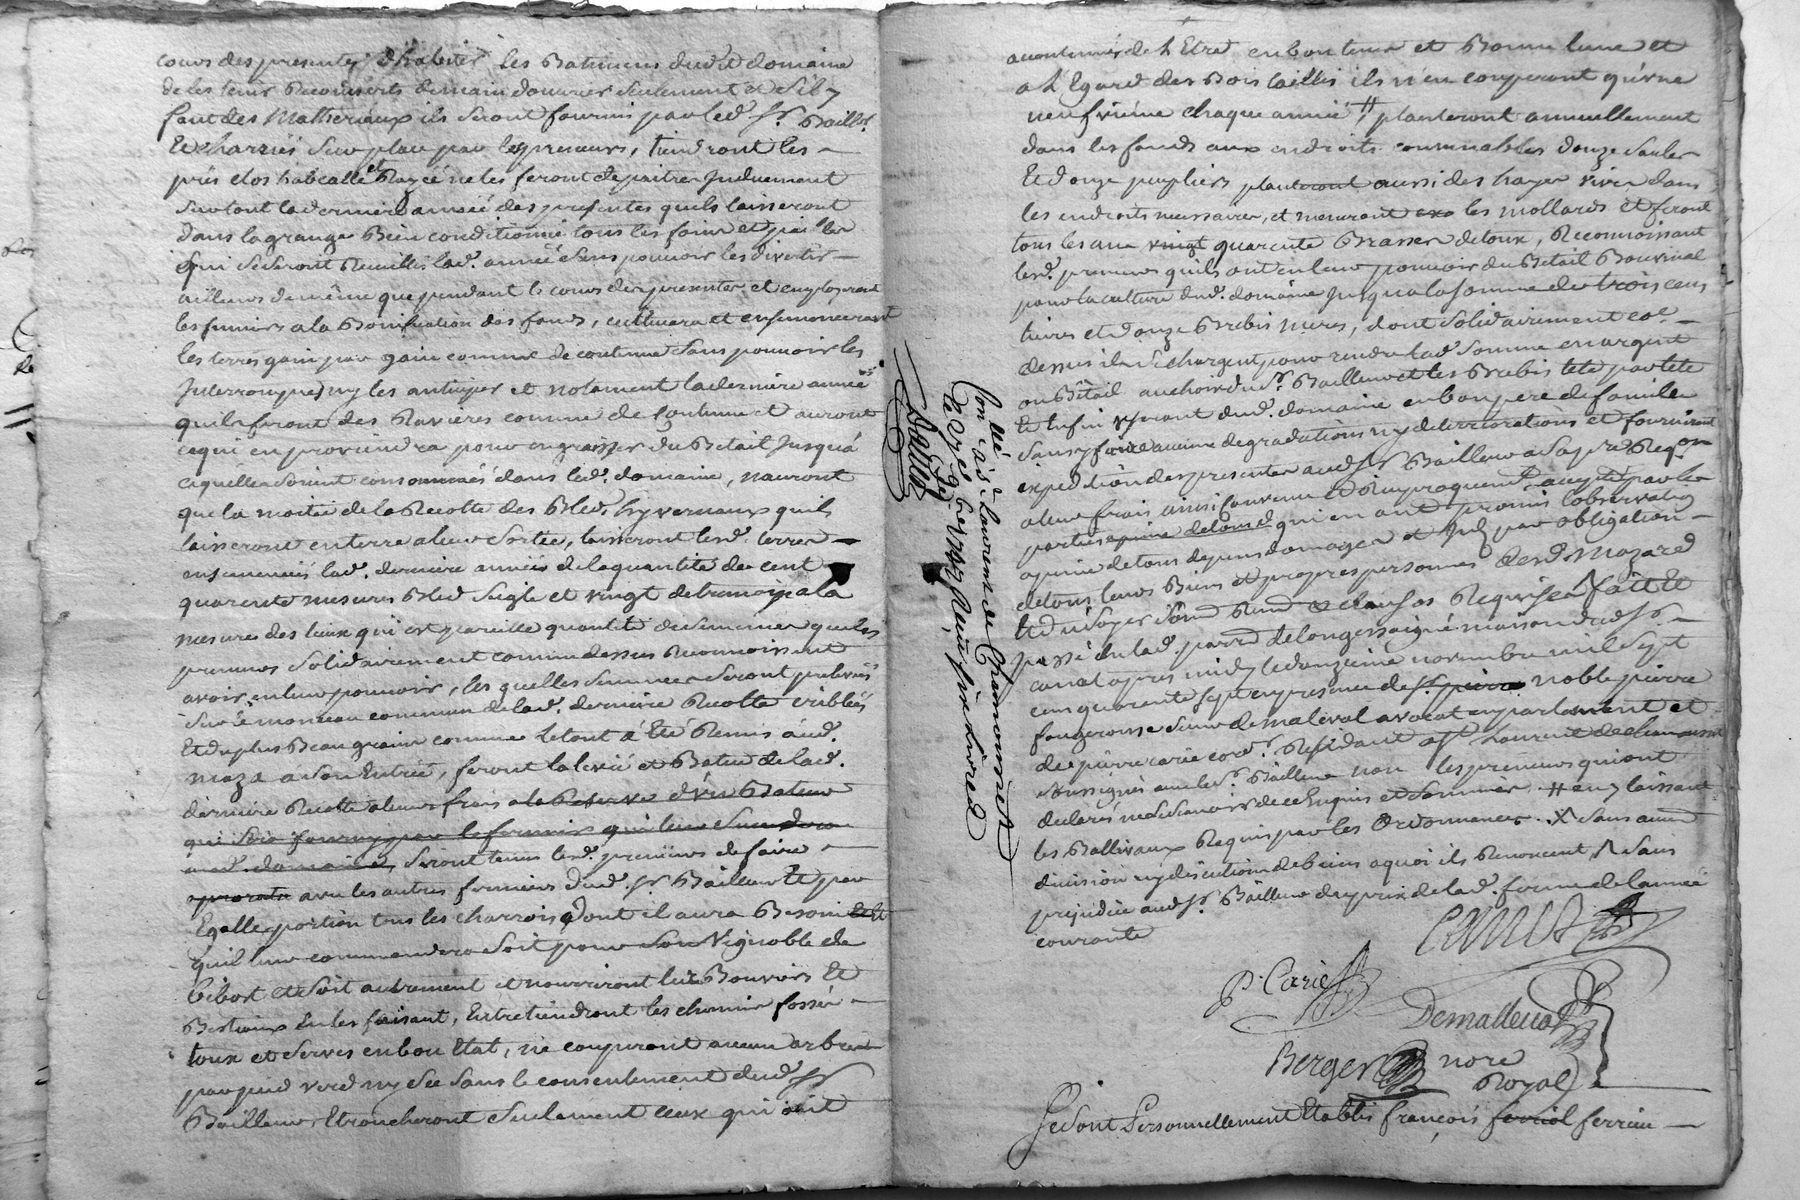 cours des presentes d'habiter les Batiments dud.t domaine
de les tenir Recouverts de main d'ouvrier seulement et s'il y
faut des Matheriaux ils seront fournis par led. Sr. Bailleur
Et charriés sur place par les preneurs, tiendront les
prés clos et Razcé ne les feront depaitre Induement
surtout la derniere année des presentes quils laisseront
dans la grange Bien conditionné tous les foins et pailles
qui se seront Recuillis lad. année sans pouvoir les divertir
ailleurs de même que pendant le cours des presentes et employeront
les fumiers a la Bonification des fonds, cultivera et ensemenceront
les terres gain par gain comme de coutume sans pouvoir les
Interrompre ny les anticiper et notament la derniere année
quils feront des Ravieres comme de coutume et auront
ce qui en proviendra pour engraisser du Betail Jusqu'á
ce quelles soient consommées dans led. domaine, n'auront
que la moitié de la Recolte des Bleds hyvernaux quils
laisseront en terre a leur sortie, laisseront lesd. terres
ensemencées lad. derniere année de la quantité de cent
quarente mesures Bled seigle et vingt de tramois a la
mesure des lieux qui est pareille quantité de semences que les
preneurs solidairement comme dessus Reconnoissent
avoir en leur pouvoir, les quelles semences seront prelevées
sur le monceau commun de lad. derniere Recolte criblées
Et du plus Beau grain comme le tout á été Remis aud.
maza a son Entrée, feront la levée et Batue de lad.
derniere Recolte a leurs frais a la Reserve d'un Bateur
qui sera fourny par le fermier qui leur succedera
aud. domaine, seront tenus lesd. preneurs de faire
avec les autres fermiers dud. Sr. Bailleur Et par
Egalle portion tous les charrois dont il aura Besoin Et
quil leur commandera soit pour son Vignoble de
Bibost et soit autrement et nourriront les Bouviers Et
Bestiaux En les faisant, Entretiendront les chemins fossés
toux et serves en bon Etat, ne couperont aucun arbre
par pied verd ny sec sans le consentement dud. Sr
Bailleur, Ebrancheront seulement ceux qui ont
accoutumés de L'Etre en bon tems et Bonne lune et
a L'Egard des Bois taillis ils n'en couperont qu'une
neufvieme chaque année # planteront annuellement
dans les fonds aux endroits convenables douze saules
Et douze peupliers planteront aussi des hayes vives dans
les endroits necessaires, et meneront les mollards et feront
tous les ans vingt quarente Brasses de toux, Reconnoissant
lesd. preneurs quils ont en leur pouvoir du Betail Bouvinal
pour la culture dud. domaine Jusqu'a la somme de trois cens
livres et douze Brebis meres, dont solidairement co.e
dessus ils se chargent pour rendre lad. somme en argent
ou Bétail au choix du Sr. Bailleur et les Brebis tete par tete
Et Enfin useront dud. domaine en bon pere de famille
sans y faire aucune degradations ny deteriorations et fourniront
expedition des presentes aud. Sr Bailleur a sa pre Reqon
a leur frais ainsi convenu Et reciproquement accepté par les
parties qui en ont promis l'observation
a peine de tous depens domages et Int. par obligation
de tous leurs Biens et propres personnes desd. Mazard
Et Soum. Renon. & clauses Requises fait et
passé en lad. parr. de longessaigne maison dud. Sr.
canat apres midy le douzieme novembre mil sept
cens quarente sept en presence de Sr. pierre noble pierre
fougerousse sieur de maleval avocat en parlement et
de pierre carie cord.r Residant a St Laurent de chamousset
soussignés avec led. Sr Bailleur non les preneurs qui ont
declarés ne scavoir de ce Enquis et sommés # en y laissant
les Ballivaux Requis par les Ordonnances. X sans aucune
division ny discution de biens a quoi ils Renoncent & sans
prejudice aud. Sr. Bailleur du prix de lad. ferme de l'année
courante
Canat
P. Carie
Demalleval
Berger nore
Royal
Se sont Personnellement Etablis françois ferriol ferrieu
Con llé a St Laurent de Chamousset
le 23e 9bre 1747 Reçu six livres
Dallier